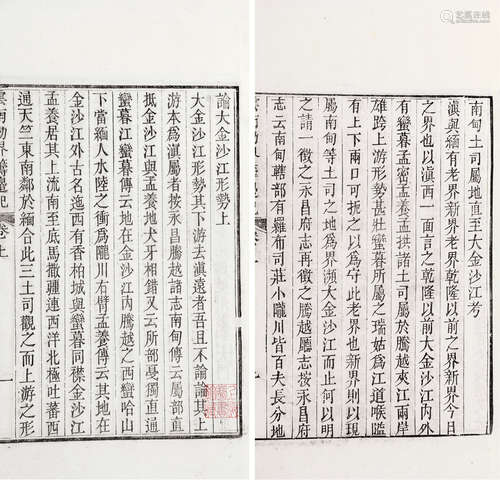 南甸土司屬地直至大金沙江考
滇與緬有老界新界老界乾隆以前之界新界今日
之界也以滇西一面言之乾隆以前大金沙江内外
有孟密孟養孟拱諸土司屬於騰越夾江兩岸
雄跨上游形勢甚壯蠻暮所屬之瑞姑爲江道喉隘
有上下兩口可扼之以爲守此老界也新界則以現
屬南甸等土司之地爲界瀕大金沙江而止何以明
之請一徵之永昌府志再徵之騰越廳志按永昌府
志云南甸轄部有羅布司莊小隴川皆百夫長分地
論大金沙江形勢上
大金沙江形勢其下游去滇遠者吾且不論論其上
游本爲滇屬者按永昌騰越諸志南甸傳云屬部直
抵金沙江與孟養地犬牙相錯又云所部戞獨直通
蠻暮江蠻暮傳云地在金沙江内騰越之西蠻哈山
下當緬人水陸之衝爲隴川右臂孟養傳云其地在
金沙江外古名迤西有香柏城與蠻暮同襟金沙江
孟養居其上流南至底馬撒疆連西洋北極吐蕃西
通天竺東南鄰於緬合此三土司觀之而上游之形
雲南勘界籌邊記 卷上
一